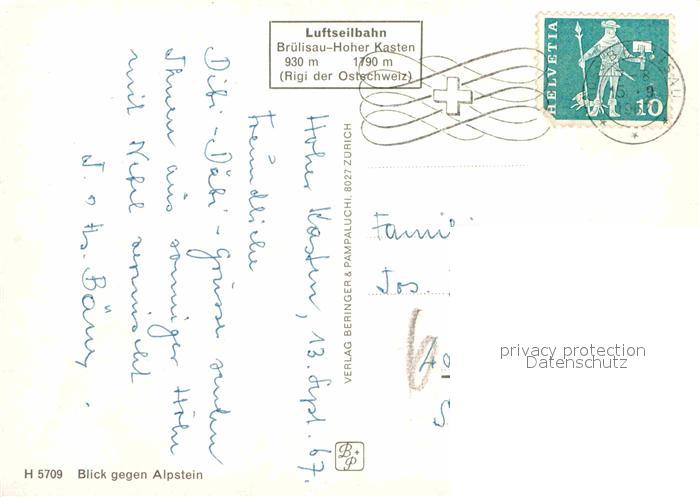 Luftseilbahn
Brülisau–Hoher Kasten
930 m 1790 m
(Rigi der Ostschweiz)
HELVETIA
10
Hoher Kasten, 13. Sept. 67.
Freundliche
Grüsse senden
Ihnen aus sonniger Höhe
mit Nebel vermischt
J. + Hs.
VERLAG BERINGER & PAMPALUCHI, 8027 ZÜRICH
Fami
Jos.
privacy protection
Datenschutz
B+P
H 5709 Blick gegen Alpstein